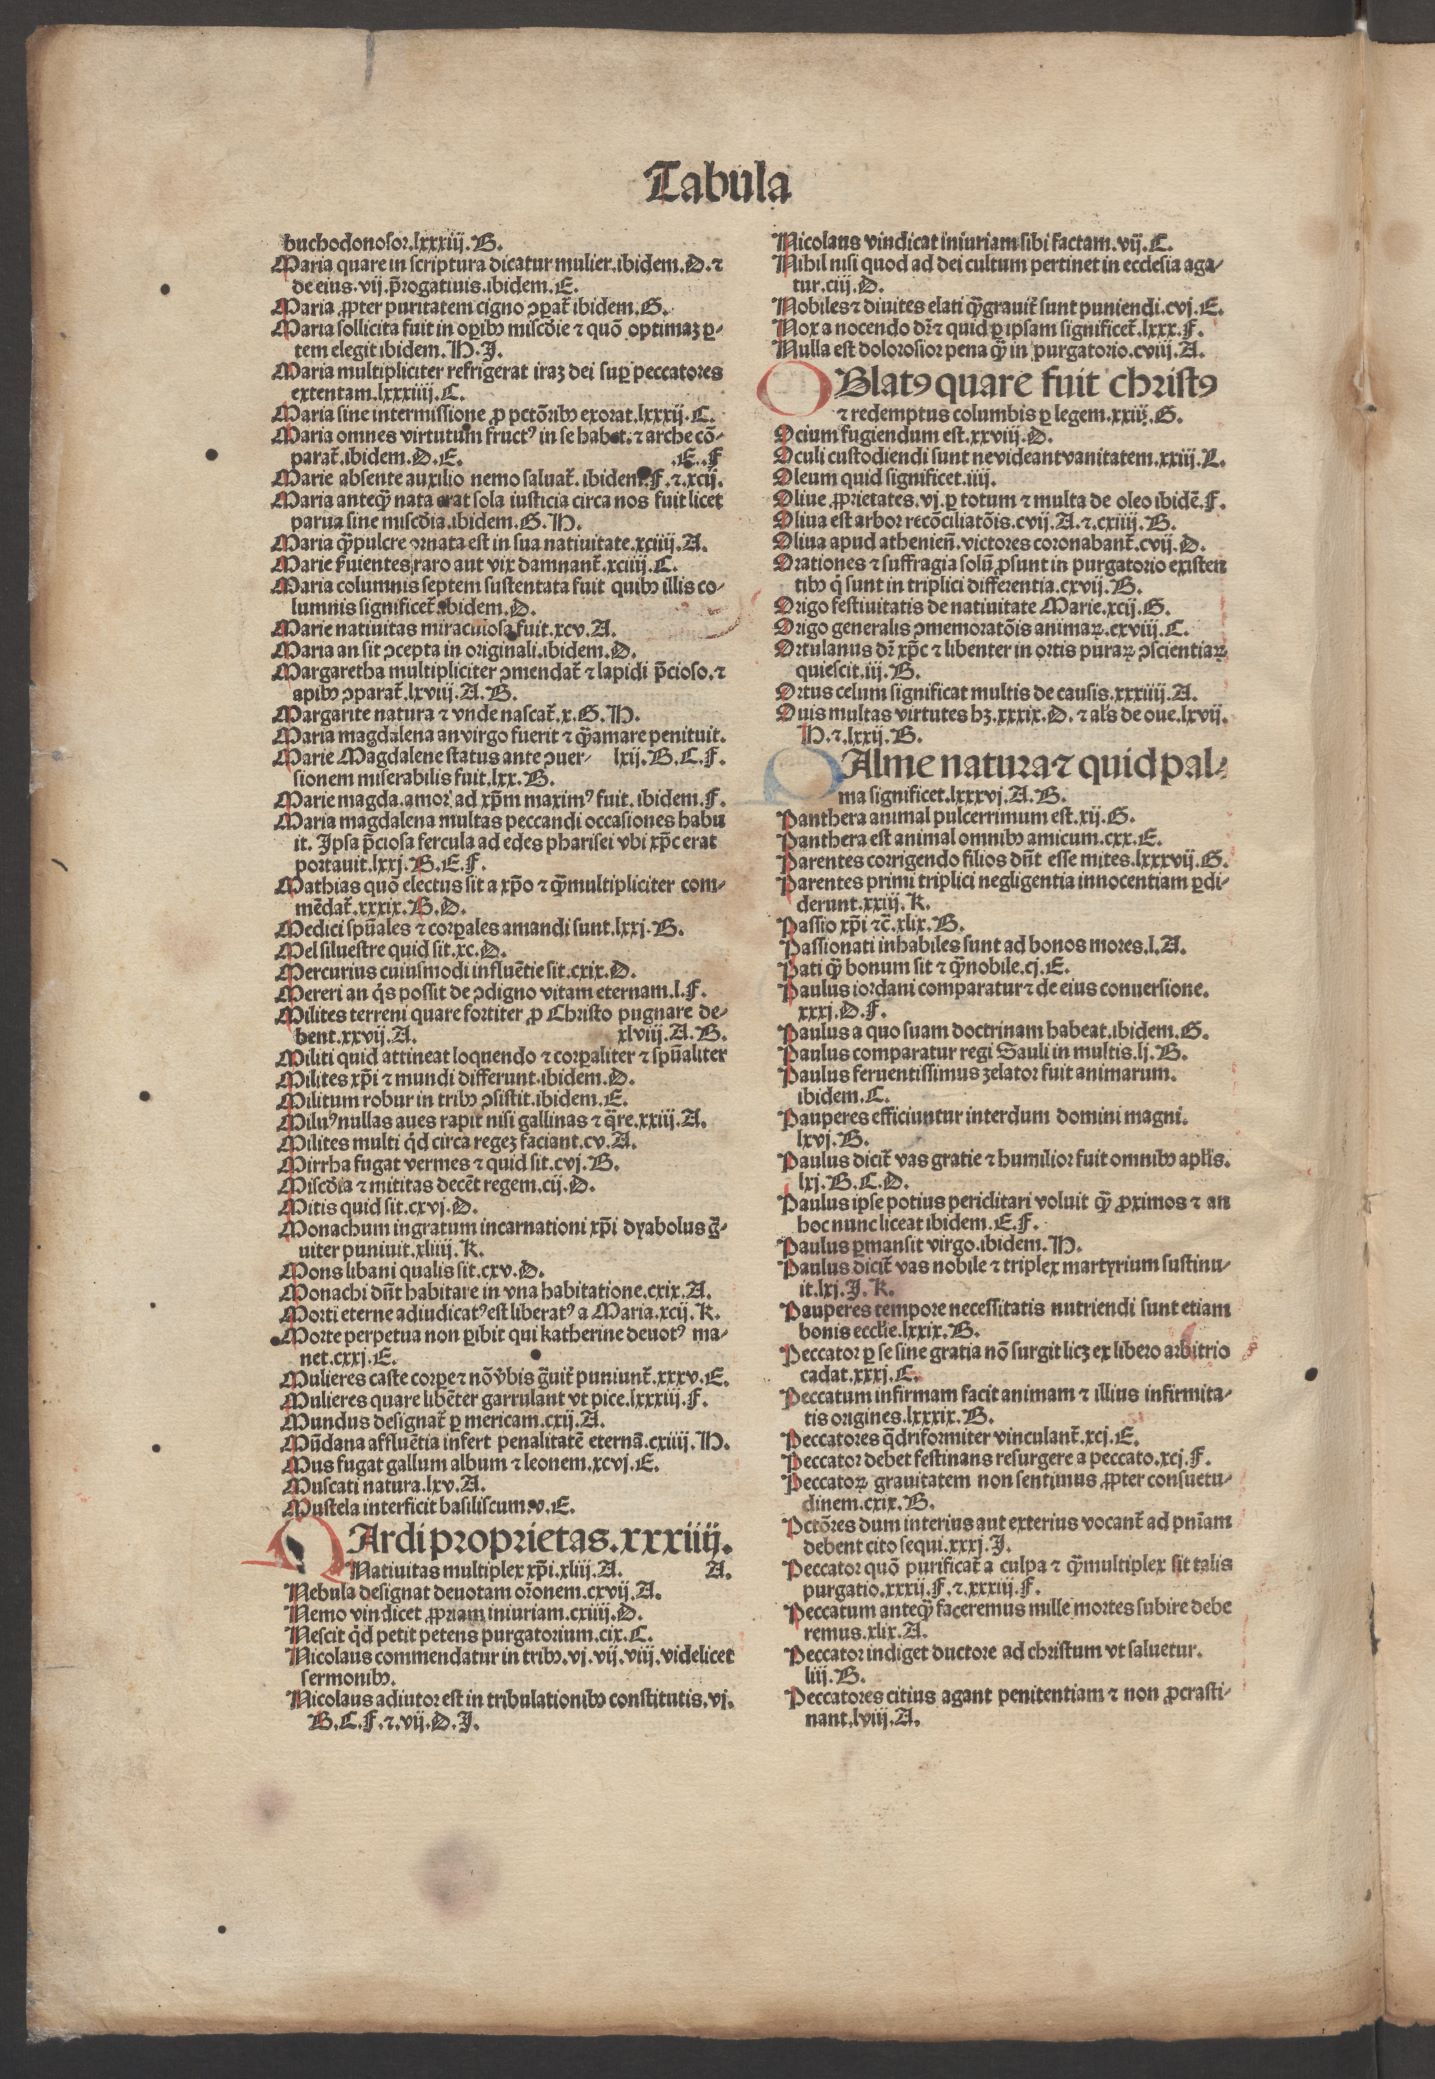 Tabula
buchodonosor.lxxxiij.B.
Maria quare in scriptura dicatur mulier.ibidem.D.⁊
de eius.vij.p̄rogatiuis.ibidem.E.
Maria ꝓpter puritatem cigno ꝯꝑat᷑ ibidem.G.
Maria sollicita fuit in oꝑibꝰ miscd̄ie ⁊ quō optimaꝫ ꝑ-
tem elegit ibidem.H.I.
Maria multipliciter refrigerat iraꝫ dei suꝑ peccatores
extentam.lxxxiiij.C.
Maria sine intermissione ꝓ pctōribꝰ exorat.lxxxij.C.
Maria omnes virtutum fructꝰ in se habet.⁊ arche cō-
parat᷑.ibidem.D.E. .E.F
Marie absente auxilio nemo saluat᷑. ibidem.F.⁊.xcij.
Maria anteqꝫ̄ nata erat sola iusticia circa nos fuit licet
parua sine miscd̄ia.ibidem.G.H.
Maria qꝫ̄pulcre ornata est in sua natiuitate.xciiij.A.
Marie ẜuientes raro aut vix damnant᷑.xciiij.C.
Maria columnis septem sustentata fuit quibꝰ illis co-
lumnis significet᷑.ibidem.D.
Marie natiuitas miraculosa fuit.xcv.A.
Maria an sit ꝯcepta in originali.ibidem.D.
Margaretha multipliciter ꝯmendat᷑ ⁊ lapidi p̄cioso.⁊
apibꝰ ꝯparat᷑.lxviij.A.B.
Margarite natura ⁊ vnde nascat᷑.x.G.H.
Maria magdalena an virgo fuerit ⁊ qꝫ̄amare penituit.
Marie Magdalene status ante ꝯuer- lxij.B.C.F.
sionem miserabilis fuit.lxx.B.
Marie magda.amor ad xp̄m maximꝰ fuit. ibidem.F.
Maria magdalena multas peccandi occasiones habu
it. Ipsa p̄ciosa fercula ad edes pharisei vbi xp̄c erat
portauit.lxxj.B.E.F.
Mathias quō electus sit a xp̄o ⁊ qꝫ̄multipliciter com-
mēdat᷑.xxxix.B.D.
Medici spūales ⁊ corꝑales amandi sunt.lxxj.B.
Mel siluestre quid sit.xc.D.
Mercurius cuiusmodi influētie sit.cxix.D.
Mereri an q̇s possit de ꝯdigno vitam eternam.l.F.
Milites terreni quare fortiter ꝓ Christo pugnare de-
bent.xxvij.A. xlviij.A.B.
Militi quid attineat loquendo ⁊ corꝑaliter ⁊ spūaliter
Milites xp̄i ⁊ mundi differunt.ibidem.D.
Militum robur in tribꝰ ꝯsistit.ibidem.E.
Miluꝰ nullas aues rapit nisi gallinas ⁊ q̄re.xxiij.A.
Milites multi q̇d circa regeꝫ faciant.cv.A.
Mirrha fugat vermes ⁊ quid sit.cvj.B.
Miscd̄ia ⁊ mititas decēt regem.cij.D.
Mitis quid sit.cxvj.D.
Monachum ingratum incarnationi xp̄i dyabolus g̃-
uiter puniuit.xliiij.K.
Mons libani qualis sit.cxv.D.
Monachi dn̄t habitare in vna habitatione.cxix.A.
Morti eterne adiudicatꝰ est liberatꝰ a Maria.xcij.K.
Morte perpetua non ꝑibit qui katherine deuotꝰ ma-
net.cxxj.E.
Mulieres caste corꝑe ⁊ nō v̄bis g̃uit᷑ puniunt᷑.xxxv.E.
Mulieres quare libēter garrulant vt pice.lxxxiij.F.
Mundus designat᷑ ꝑ mericam.cxij.A.
Mūdana affluētia infert penalitatē eternā.cxiiij.H.
Mus fugat gallum album ⁊ leonem.xcvj.E.
Muscati natura.lxv.A.
Mustela interficit basiliscum.v.E.
Ardi proprietas.xxxiiij.
Natiuitas multiplex xp̄i.xliij.A. A.
Nebula designat deuotam or̄onem.cxvij.A.
Nemo vindicet ꝓpriam iniuriam.cxiij.D.
Nescit q̇d petit petens purgatorium.cix.C.
Nicolaus commendatur in tribꝰ.vj.vij.viij.videlicet
sermonibꝰ.
Nicolaus adiutor est in tribulationibꝰ constitutis.vj.
B.C.F.⁊.vij.D.I.
Nicolaus vindicat iniuriam sibi factam.vij.C.
Nihil nisi quod ad dei cultum pertinet in ecclesia aga-
tur.ciij.D.
Nobiles ⁊ diuites elati qꝫ̄grauit᷑ sunt puniendi.cvj.E.
Nox a nocendo dr̄ ⁊ quid ꝑ ipsam significet᷑.lxxx.F.
Nulla est dolorosior pena qꝫ̄ in purgatorio.cviij.A.
OBlatꝰ quare fuit christꝰ
⁊ redemptus columbis ꝑ legem.xxiij.G.
Ocium fugiendum est.xxviij.D.
Oculi custodiendi sunt ne videant vanitatem.xxiij.L.
Oleum quid significet.iiij.
Oliue ꝓprietates.vj.ꝑ totum ⁊ multa de oleo ibidē.F.
Oliua est arbor recōciliatōis.cvij.A.⁊.cxiiij.B.
Oliua apud athenien̄.victores coronabant᷑.cvij.D.
Orationes ⁊ suffragia solū ꝓsunt in purgatorio existen
tibꝰ q̇ sunt in triplici differentia.cxvij.B.
Origo festiuitatis de natiuitate Marie.xcij.G.
Origo generalis ꝯmemoratōis animaꝝ.cxviij.C.
Ortulanus dr̄ xp̄c ⁊ libenter in ortis puraꝝ ꝯscientiaꝝ
quiescit.iij.B.
Ortus celum significat multis de causis.xxxiiij.A.
Ouis multas virtutes hꝫ.xxxix.D.⁊ al̄s de oue.lxvij.
H.⁊.lxxij.B.
Alme natura ⁊ quid pal-
ma significet.lxxxvj.A.B.
Panthera animal pulcerrimum est.xij.G.
Panthera est animal omnibꝰ amicum.cxx.E.
Parentes corrigendo filios dn̄t esse mites.lxxxvij.G.
Parentes primi triplici negligentia innocentiam ꝑdi-
derunt.xxiij.K.
Passio xp̄i ⁊c̄.xlix.B.
Passionati inhabiles sunt ad bonos mores.l.A.
Pati qꝫ̄ bonum sit ⁊ qꝫ̄nobile.cj.E.
Paulus iordani comparatur ⁊ de eius conuersione.
xxxj.D.F.
Paulus a quo suam doctrinam habeat.ibidem.G.
Paulus comparatur regi Sauli in multis.lj.B.
Paulus feruentissimus zelator fuit animarum.
ibidem.C.
Pauperes efficiuntur interdum domini magni.
lxvj.B.
Paulus dicit᷑ vas gratie ⁊ humilior fuit omnibꝰ apl̄is.
lxj.B.C.D.
Paulus ipse potius periclitari voluit qꝫ̄ ꝓximos ⁊ an
hoc nunc liceat ibidem.E.F.
Paulus ꝑmansit virgo.ibidem.H.
Paulus dicit᷑ vas nobile ⁊ triplex martyrium sustinu-
it.lxj.I.K.
Pauperes tempore necessitatis nutriendi sunt etiam
bonis eccl̄ie.lxxix.B.
Peccator ꝑ se sine gratia nō surgit licꝫ ex libero arbitrio
cadat.xxxj.C.
Peccatum infirmam facit animam ⁊ illius infirmita-
tis origines.lxxxix.B.
Peccatores q̄driformiter vinculant᷑.xcj.E.
Peccator debet festinans resurgere a peccato.xcj.F.
Peccatoꝝ grauitatem non sentimus ꝓpter consuetu-
dinem.cxix.B.
Pctōres dum interius aut exterius vocant᷑ ad pn̄iam
debent cito sequi.xxxj.I.
Peccator quō purificat᷑ a culpa ⁊ qꝫ̄multiplex sit talis
purgatio.xxxij.F.⁊.xxxiij.F.
Peccatum anteqꝫ̄ faceremus mille mortes subire debe
remus.xlix.A.
Peccator indiget ductore ad christum vt saluetur.
liij.B.
Peccatores citius agant penitentiam ⁊ non ꝓcrasti-
nant.lviij.A.